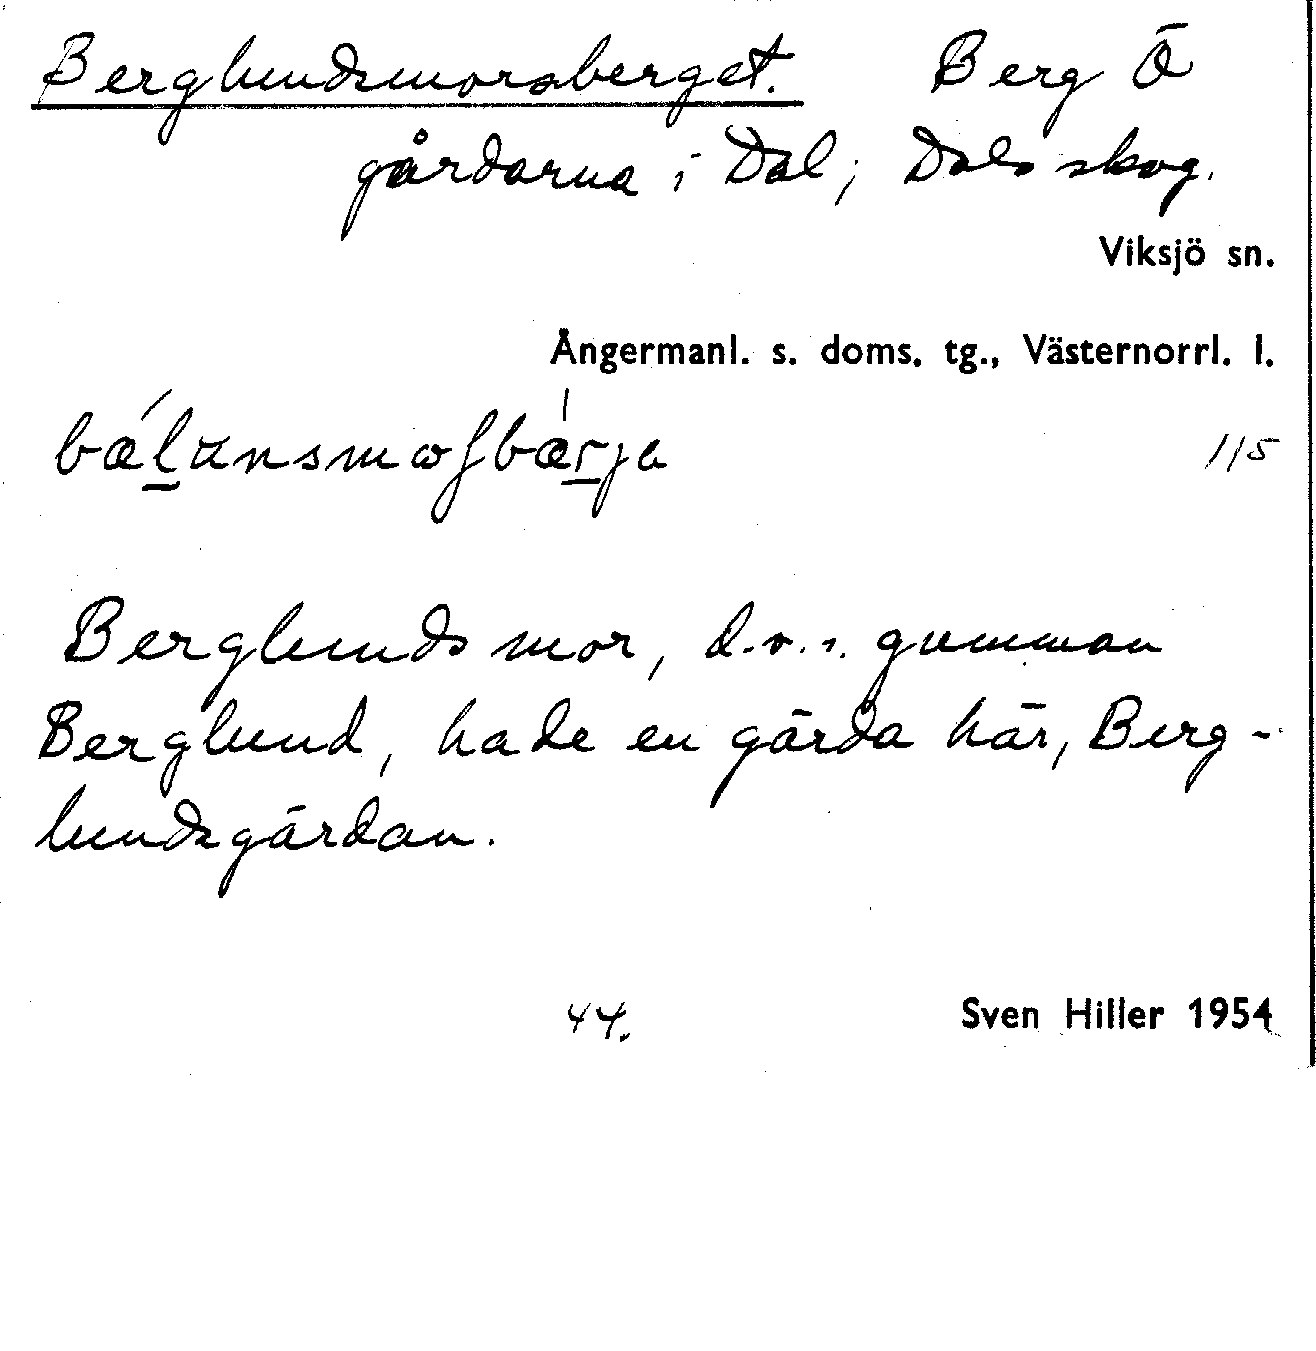 Berglundsmorsberget. Berg Ö
gårdarna i Dal; Dals skog.
Viksjö sn.
Ångermanl. s. doms. tg., Västernorrl. l.
115
Berglunds mor, d.v.s. gumman
Berglund, hade en gärda här, Berg-
lundsgärdan.
44. Sven Hiller 1954